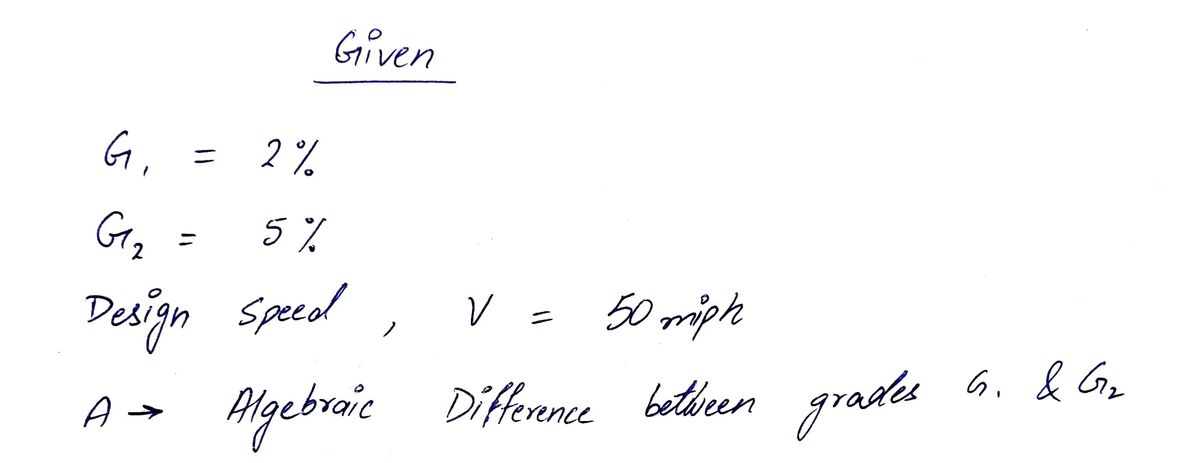 Given
G₁ = 2%
G₂ = 5%
Design speed, V = 50 miph
A → Algebraic Difference between grades G₁ & G₂